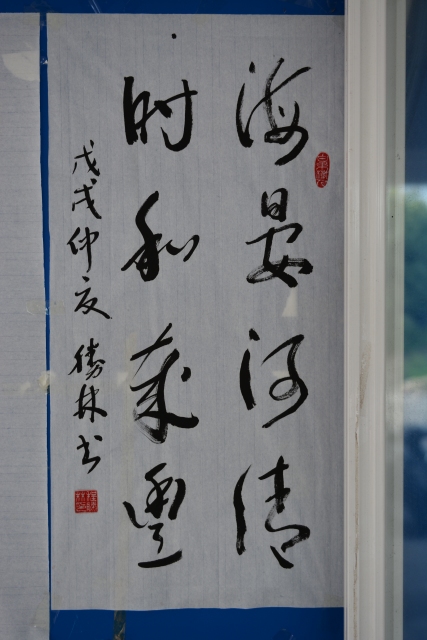 海晏河清
时和岁豐
戊戌仲夏 勝林书